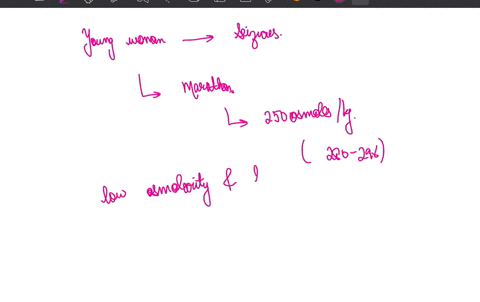 Young woman → Seizures.
↳ Marathon.
↳ 250 osmols/kg.
(280-296)
low osmolarity &